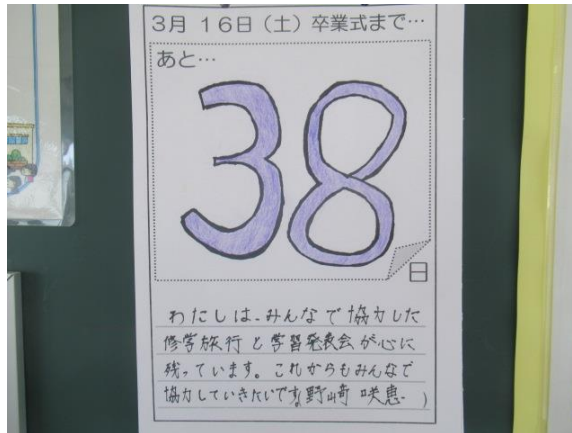 3月 16日（土）卒業式まで…
あと…
38
日
わたしは、みんなで協力した
修学旅行と学習発表会が心に
残っています。これからもみんなで
協力していきたいです(野崎 咲恵 )